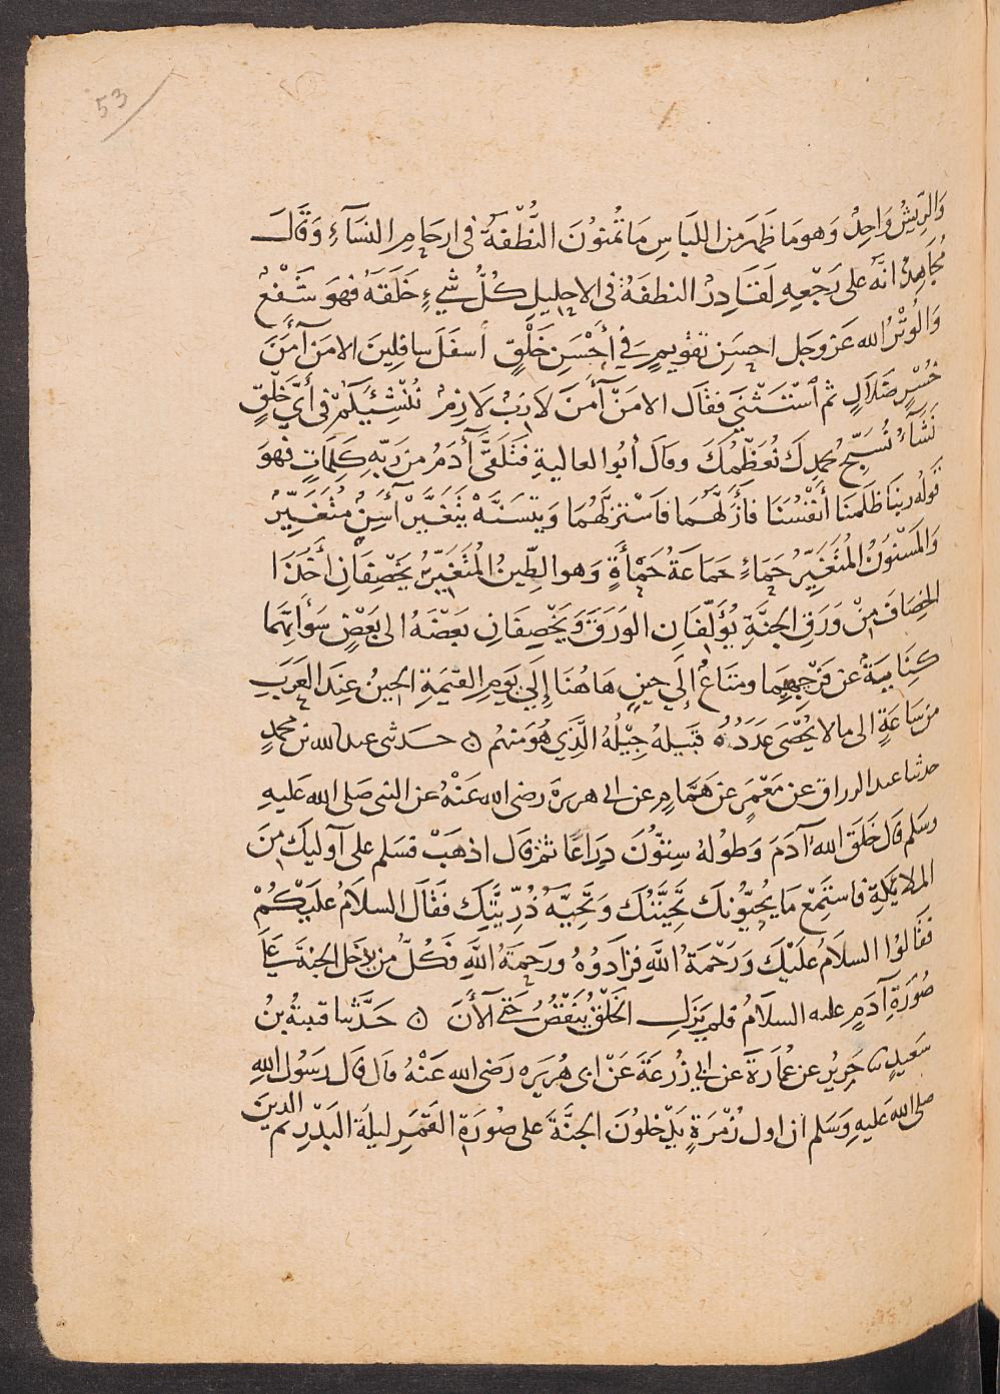 53
وَالرِّيشُ وَاحِدٌ وَهوَ مَا ظَهَرَ مِن اللبَاسِ مَا تُمْنُونَ النُّطْفَةُ فى ارحَامِ النسَآءِ وَقَالَ
مُجَاهِدٌ انَّه على رَجْعِهِ لَقَادِرٌ النطفَةُ فى الاحليل كُلُّ شيءٍ خَلَقَهُ فهوَ شَفْعٌ
وَالوُتْرُ الله عَز وجل احسَنِ تقوِيمٍ فِي أَحْسَنِ خَلْقٍ اسفَلَ سافِلِينَ الامَن آمَنَ
خُسْرٍ ضَلَالٍ ثم اسْتَثْنَى فقَال الامَنْ آمَنَ لازبٌ لازِمٌ نُنْشِئَكُمْ فى أَيِّ خَلْقٍ
نَشَآءُ نُسَبِّحُ بحمدِكَ نُعَظِّمُكَ وقال أبُوا العاليةِ فَتَلَقَّى آدَمُ من رَبِّهِ كَلِمَاتٍ فهوَ
قَولُه ربنَا ظَلَمنَا أنفُسَنَا فأَزَلَّهُمَا فَاسْتَزَلَّهُمَا وَيتسَنَّهْ يَتَغَيَّرْ آسِنٌ مُتَغَيِّرٌ
وَالمَسْنُونُ المُتَغَيِّرُ حَمَاءٍ جَمَاعَةُ حَمْأَةٍ وَهوالطِّينُ المُتَغَيِّرُ يَخْصِفَانِ أَخْذَا
الخِصَافَ مِنْ وَرَقِ الجنَّةِ يُؤَلِّفَانِ الوَرَقَ وَيَخْصِفَانِ بَعضَهُ الى بَعْضٍ سَوَأتهَما
كِنَايةٌ عن فَرْجيهِمَا ومتَاعٌ إلَي حينٍ هَاهُنَا إلَي يَومِ القيٰمَةِ الحِينُ عِندَ العَرَبِ
من سَاعَةٍ الى مالا يُحْصَى عَدَدُه قَبيلهُ جِيْلُهُ الَّذِي هُوَ منهُم ۞ حَدثنى عبد الله بن محمدٍ
حدثنا عبد الرزاق عن مَعْمَرٍ عن هَمَّامٍ عن ابى هريرة رضى الله عَنْهُ عن النبى صَلى الله عَليهِ
وسَلم قال خَلَقَ اللهُ آدَمَ وَطُولهُ سِتُّونَ ذِرَاعًا ثم قال اذهَبْ فسَلم على آوليك مِنَ
الملائكةِ فاستَمِعْ مَا يُحيُّونكَ تَحِيَّتُكَ وَتَحِيَّةُ ذُرِّيَّتِكَ فَقَالَ السلامُ عَلَيْكُمْ
فقَالُوا السلامُ عَلَيْكَ وَرَحْمَةُ اللهِ فزَادُوهُ ورَحمَةُ اللَّهِ فَكُلُّ من يدخل الجنةَ على
صُورَةِ آدَمٍ عليه السلَامُ فلم يَزَلِ الخَلْقُ يَنقُصُ حَتى الأنَ ۞ حَدَّثنا قتيبةُ بنُ
سَعيدٍ جَرِيرٌ عن عُمَارَةَ عن ابي زُرعَةَ عَنْ ابى هُرَيره رَضى الله عَنْهُ قال قال رسُول اللهِ
صلى الله عَليهِ وَسَلم ان اول زُمْرَةٍ يَدْخلُونَ الجنَّةَ على صُورَةِ القَمَرِ ليلَةَ البَدْرِ ثم الذينَ